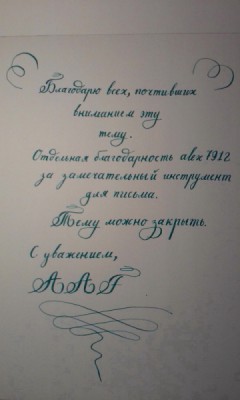 Благодарю всех, почтивших
вниманием эту
тему.
Отдельная благодарность alex7912
за замечательный инструмент
для письма.
Тему можно закрыть.
С уважением,
ААГ